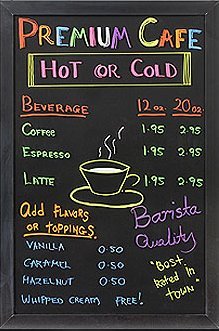 PREMIUM CAFE
HOT OR COLD
BEVERAGE 12 oz. 20 oz.
COFFEE 1.95 2.95
ESPRESSO 1.95 2.95
LATTE 1.95 2.95
Add FLAVORS
OR TOPPINGS.
VANILLA 0.50
CARAMEL 0.50
HAZELNUT 0.50
WHIPPED CREAM FREE!
Barista
Quality
"BEST
Rated IN
TOWN"